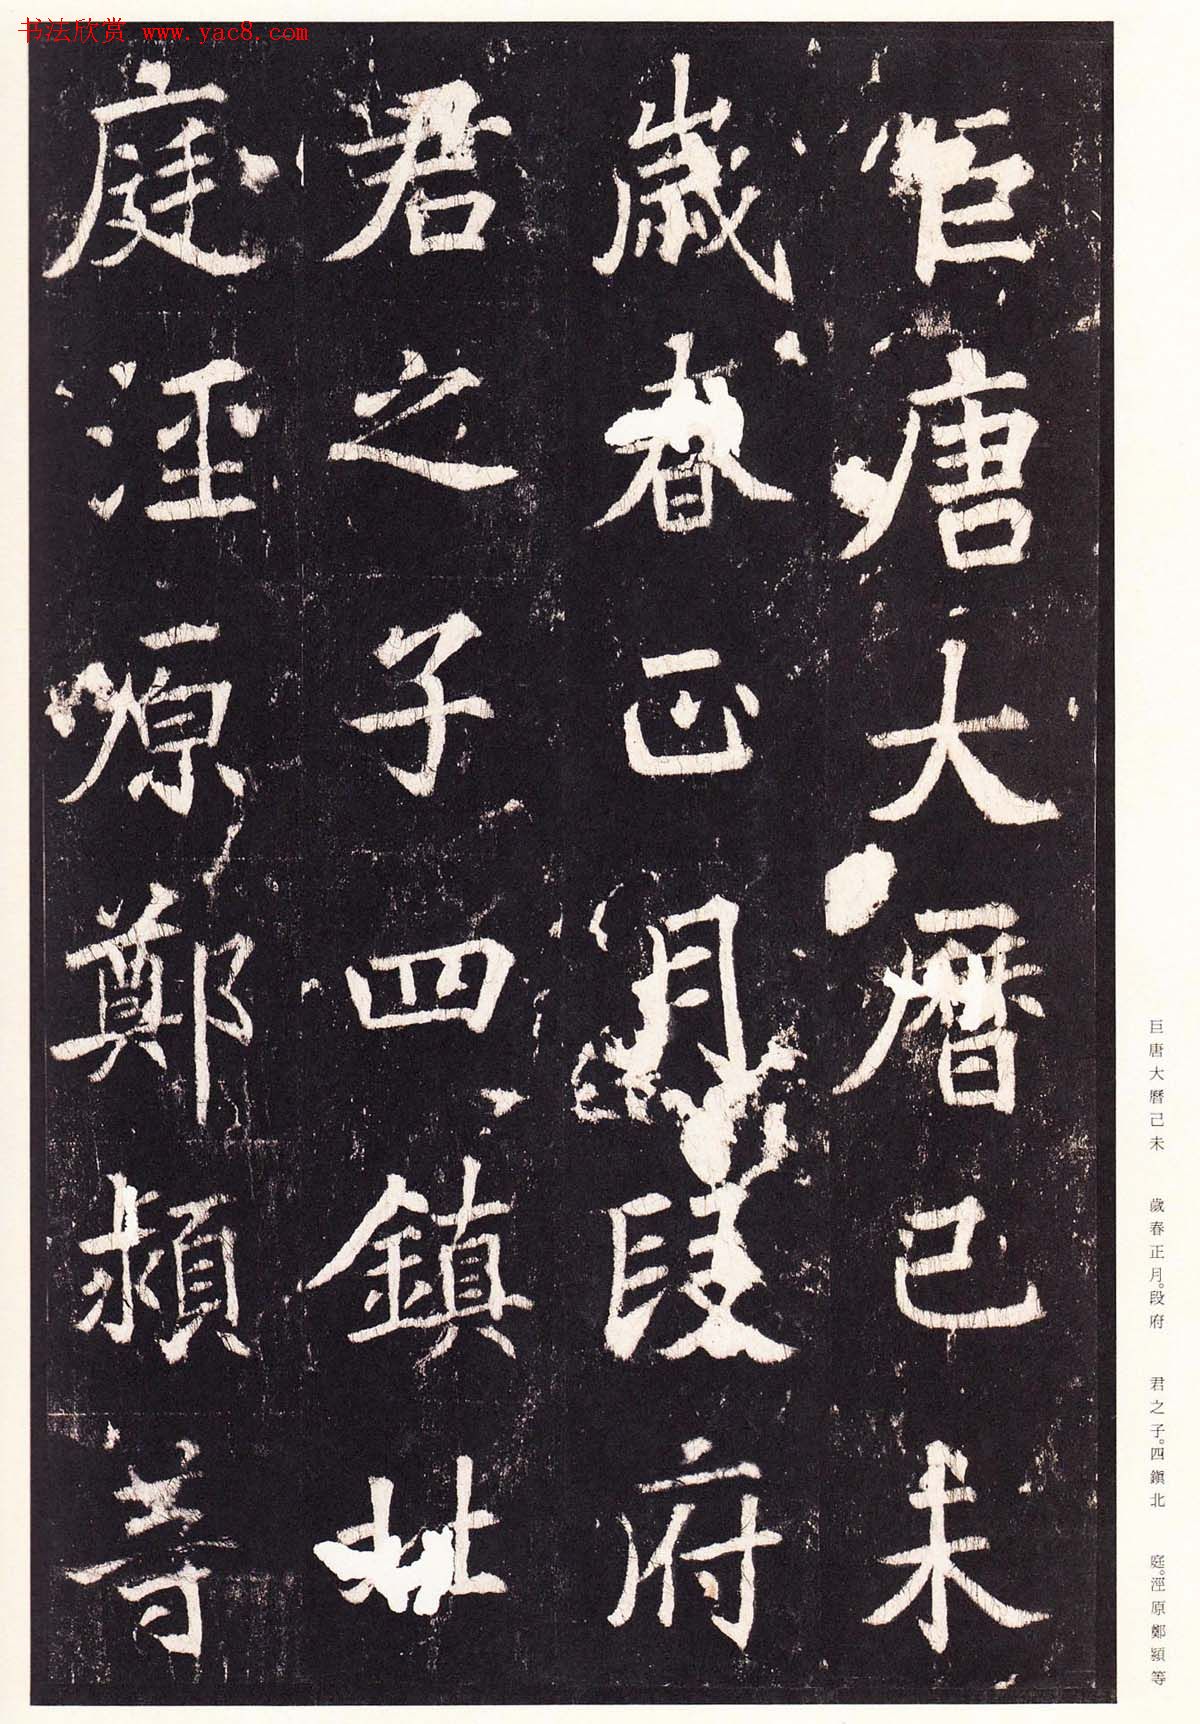 书法欣赏 www.yac8.com
巨唐大曆己未
歲春正月段府
君之子四鎮北
庭涇原鄭潁等
巨唐大曆己未　歲春正月。段府　君之子。四鎮北　庭。涇原鄭潁等